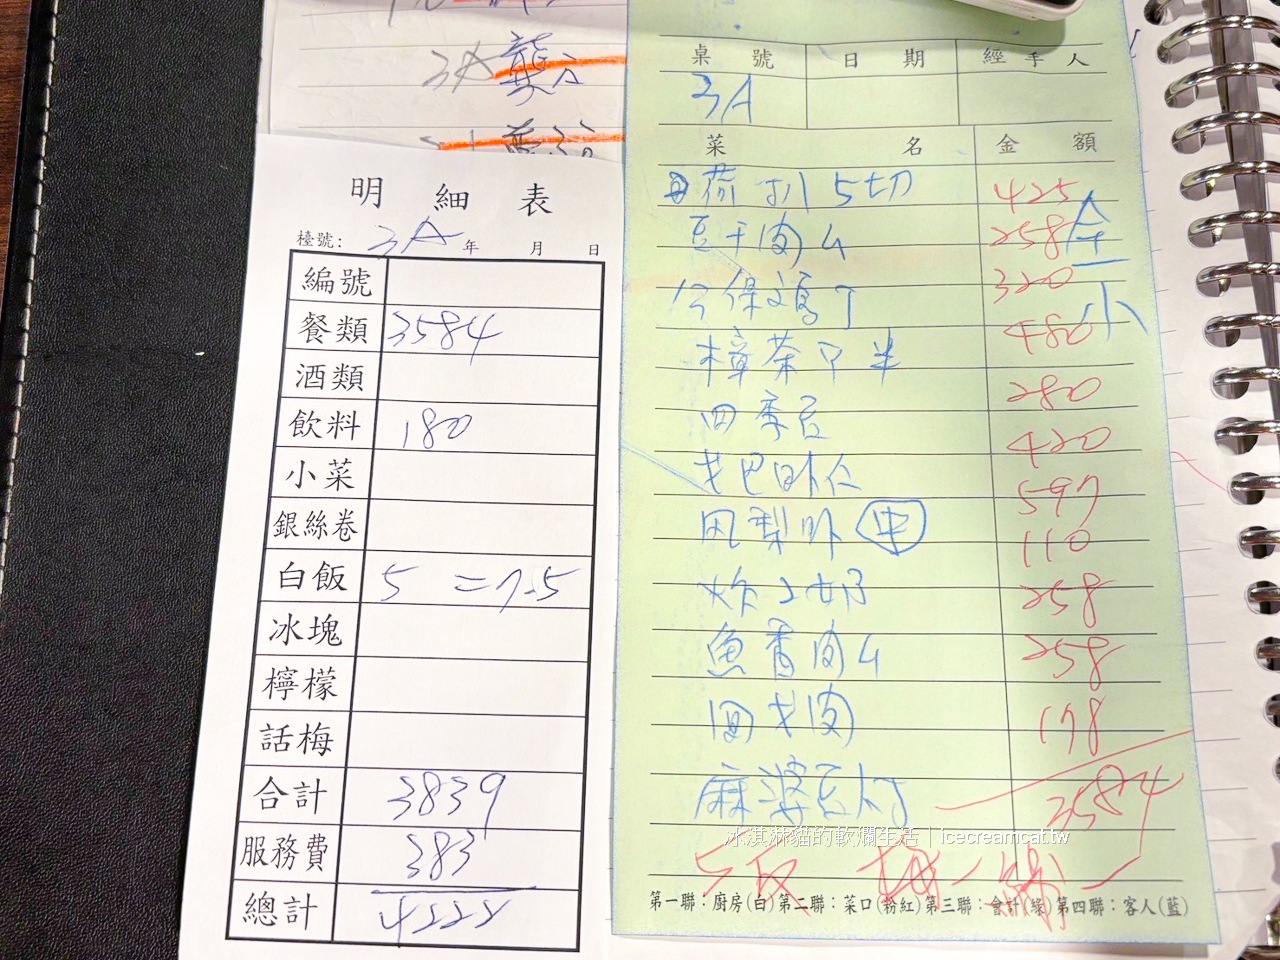 3A 龔
明細表
檯號: 3A 年 月 日
編號
餐類 3584
酒類
飲料 180
小菜
銀絲卷
白飯 5 =75
冰塊
檸檬
話梅
合計 3839
服務費 383
總計 4222
桌號 日期 經手人
3A
菜名 金額
荷扒5切 425
豆干肉ㄙ 258
公保鸡丁 320
樟茶甲半 480
四季豆 280
420
凤梨 中 597
炸ㄋ奶 110
魚香肉ㄙ 258
回肉 258
麻婆豆 178
3584
全
小
冰淇淋貓的軟爛生活 | icecreamcat.tw
第一聯：廚房(白)第二聯：菜口(粉紅)第三聯：會計(綠)第四聯：客人(藍)